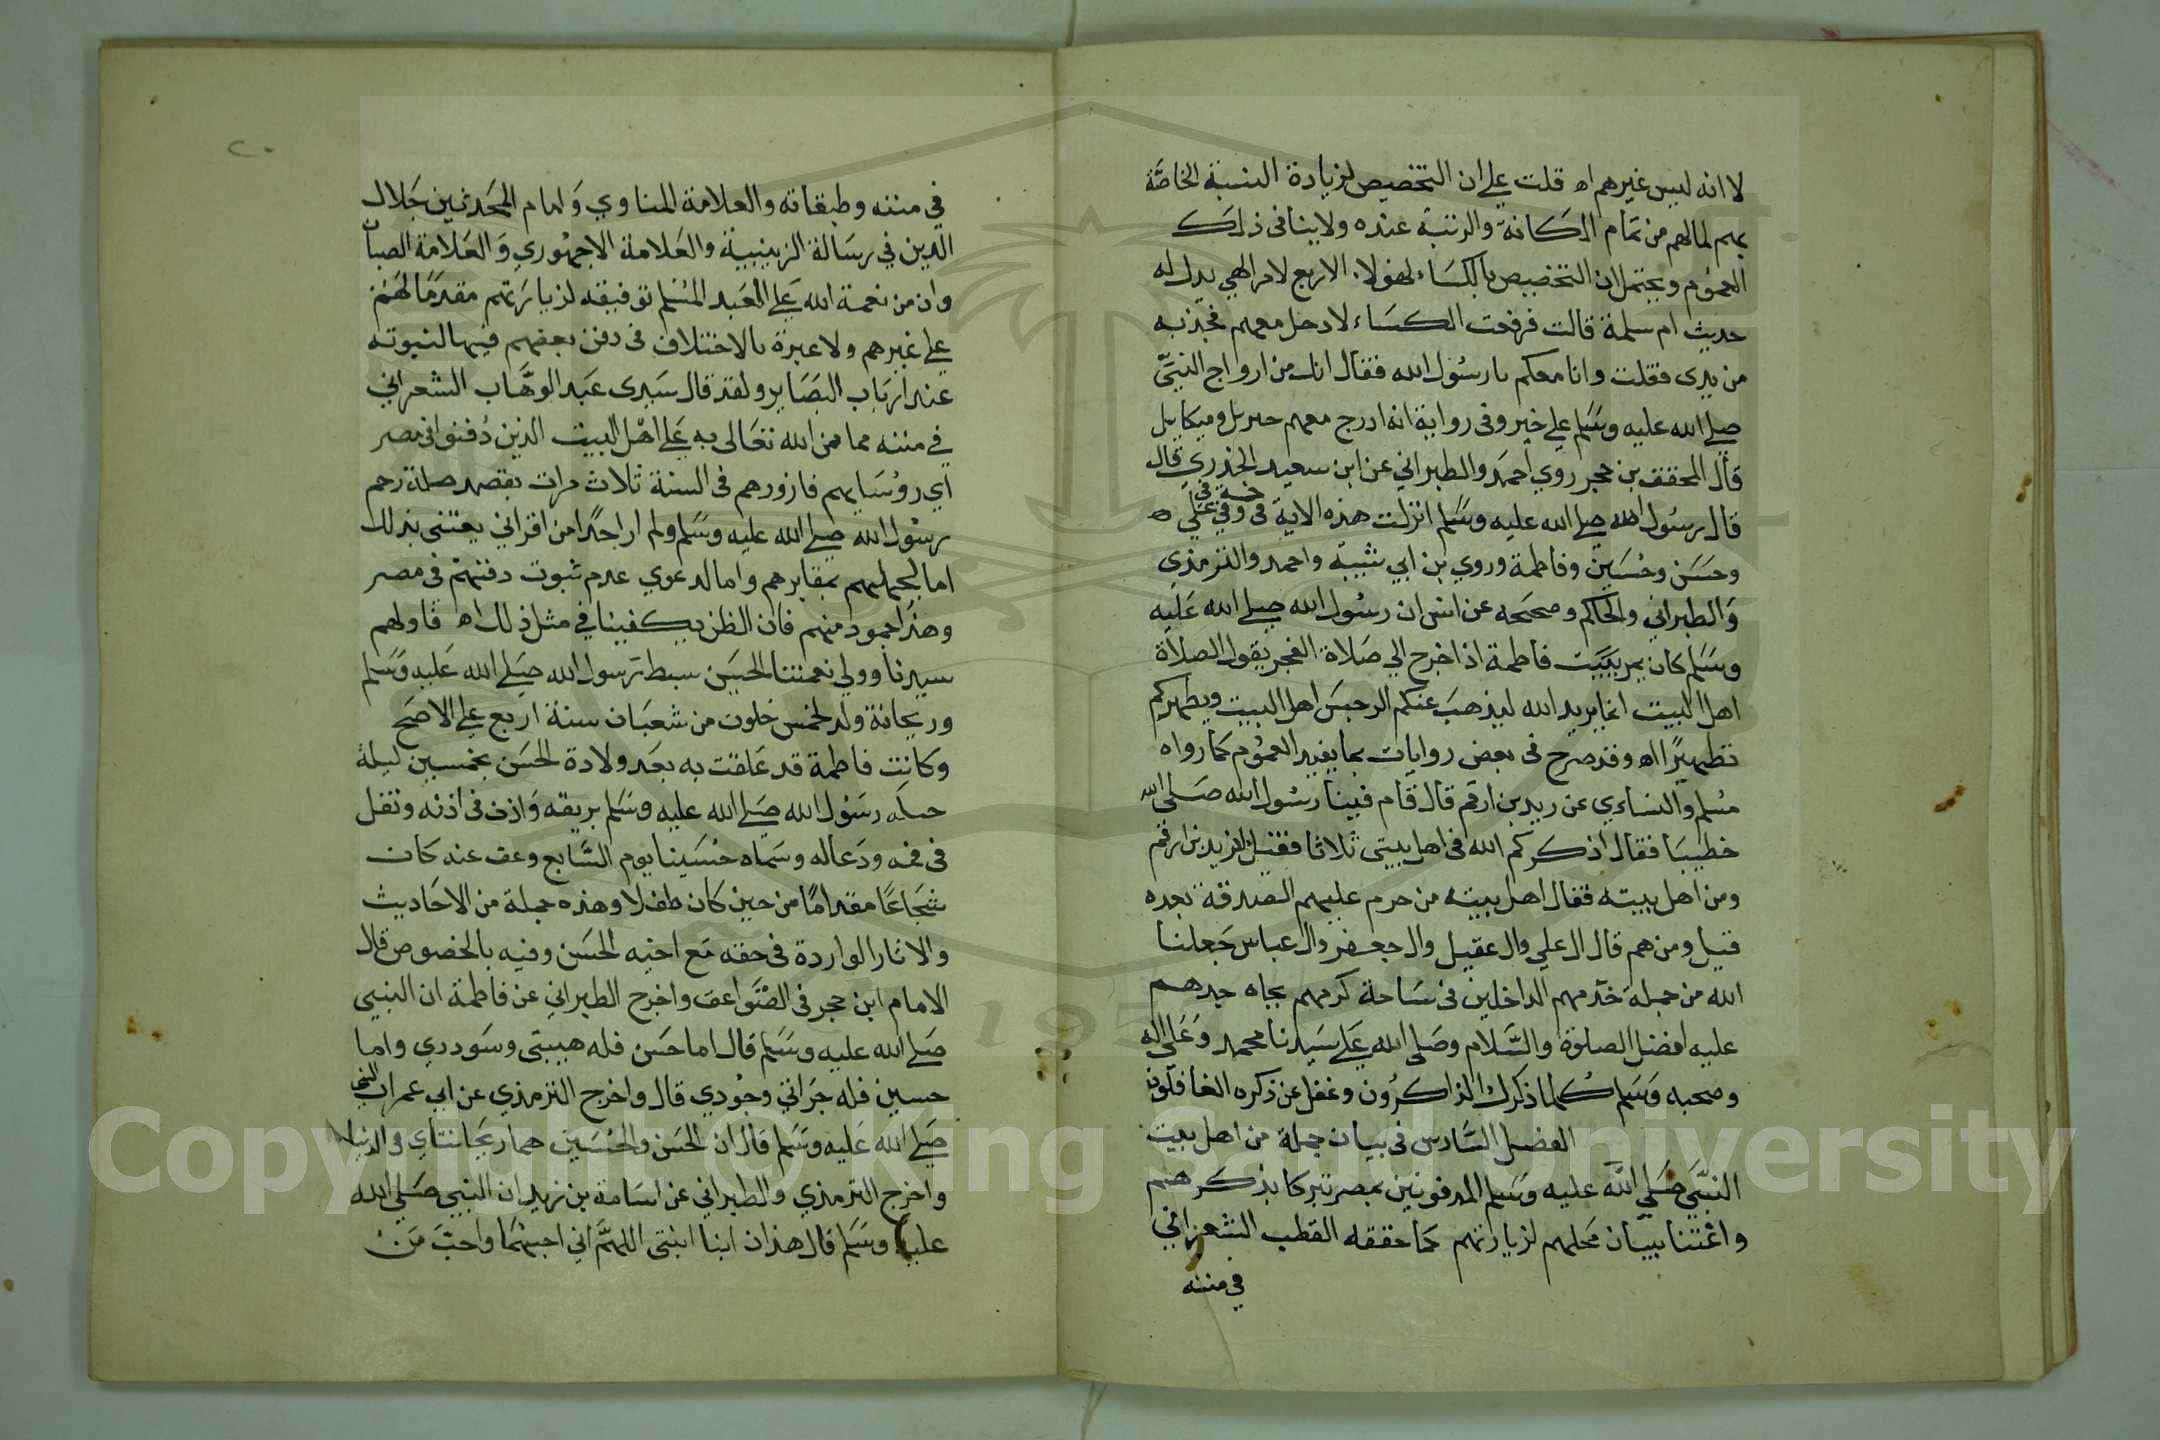 لا انه ليس غيرهم اه قلت علي ان التخصيص لزيادة النسبة الخاصة
بهم لمالهم من تمام المكانة والرتبة عنده ولا ينافى ذلك
العموم ويحتمل ان التخصيص بالكساء لهؤلاء الاربع لامر الهي يدل له
حديث ام سلمة قالت فرفعت الكساء لادخل معهم فجذبه
من يدى فقلت وانا معكم يا رسول الله فقال انك من ازواج النبي
صلي الله عليه وسلم علي خير وفى رواية انه ادرج معهم جبريل وميكايل
قال المحقق بن حجر روي احمد والطبراني عن ابن سعيد الخدري قال
قال رسول الله صلي الله عليه وسلم انزلت هذه الاية فى خمسة في وفي علي
وحسن وحسين وفاطمة وروي بن ابي شيبة واحمد والترمذي
والطبراني والحاكم وصححه عن انس ان رسول الله صلي الله عليه
وسلم كان يمر ببيت فاطمة اذا خرج الي صلاة الفجر يقول الصلاة
اهل البيت انما يريد الله ليذهب عنكم الرجس اهل البيت ويطهركم
تطهيرا اه وقد صرح فى بعض روايات بما يفيد العموم كما رواه
مسلم والنساءي عن زيد بن ارقم قال قام فينا رسول الله صلي الله
خطيبا فقال اذكركم الله فى اهل بيتى ثلاثا فقيل لزيد بن ارقم
ومن اهل بيته فقال اهل بيته من حرم عليهم الصدقة بعده
قيل ومن هم قال ال علي وال عقيل وال جعفر وال عباس جعلنا
الله من جملة خدمهم الداخلين فى ساحة كرمهم بجاه جدهم
عليه افضل الصلوة والسلام وصلى الله علي سيدنا محمد وعلي اله
وصحبه وسلم كلما ذكرك الذاكرون وغفل عن ذكره الغافلون
الفصل السادس فى بيان جملة من اهل بيت
النبي صلي الله عليه وسلم المدفونين بمصر تبركا بذكرهم
واعتنا ببيان محلهم لزيارتهم كما حققه القطب الشعراني
في مننه
٢٠
في مننه وطبقاته والعلامة المناوي وامام المحدثين جلال
الدين في رسالة الزينبية والعلامة الاجهوري والعلامة الصبان
وان من نعمة الله علي العبد المسلم توفيقه لزيارتهم مقدما لهم
علي غيرهم ولا عبرة بالاختلاف فى دفن بعضهم فيها لثبوته
عند ارباب البصاير ولقد قال سيدى عبد الوهاب الشعراني
في مننه مما من الله تعالى به علي اهل البيت الذين دفنوا فى مصر
اي رؤسايهم فازورهم فى السنة ثلاث مرات بقصد صلة رحم
رسول الله صلي الله عليه وسلم ولم ار احدا من اقراني يعتنى بذلك
اما لجهلهم بمقابرهم واما لدعوي عدم ثبوت دفنهم في مصر
وهذا جمود منهم فان الظن يكفينا في مثل ذلك اه فاولهم
سيدنا وولي نعمتنا الحسين سبط رسول الله صلي الله عليه وسلم
وريحانة ولد لخمس خلون من شعبان سنة اربع علي الاصح
وكانت فاطمة قد علقت به بعد ولادة الحسن بخمسين ليلة
حنكه رسول الله صلي الله عليه وسلم بريقه واذن فى اذنه وتفل
فى فمه ودعاله وسماه حسينا يوم السابع وعق عنه كان
شجاعا مقداما من حين كان طفلا وهذه جملة من الاحاديث
والاثار الواردة فى حقه مع اخيه الحسن وفيه بالخصوص قال
الامام ابن حجر فى الصواعق واخرج الطبراني عن فاطمة ان النبي
صلي الله عليه وسلم قال اما حسن فله هيبتى وسوددي واما
حسين فله جراتي وجودي قال واخرج الترمذي عن ابي عمر ان النبي
صلي الله عليه وسلم قال ان الحسن والحسين هما ريحانتاي فى الدنيا
واخرج الترمذي والطبراني عن اسامة بن زيد ان النبي صلي الله
عليه وسلم قال هذان ابنا ابنتى اللهم اني احبهما واحب من
Copyright © King Saud University